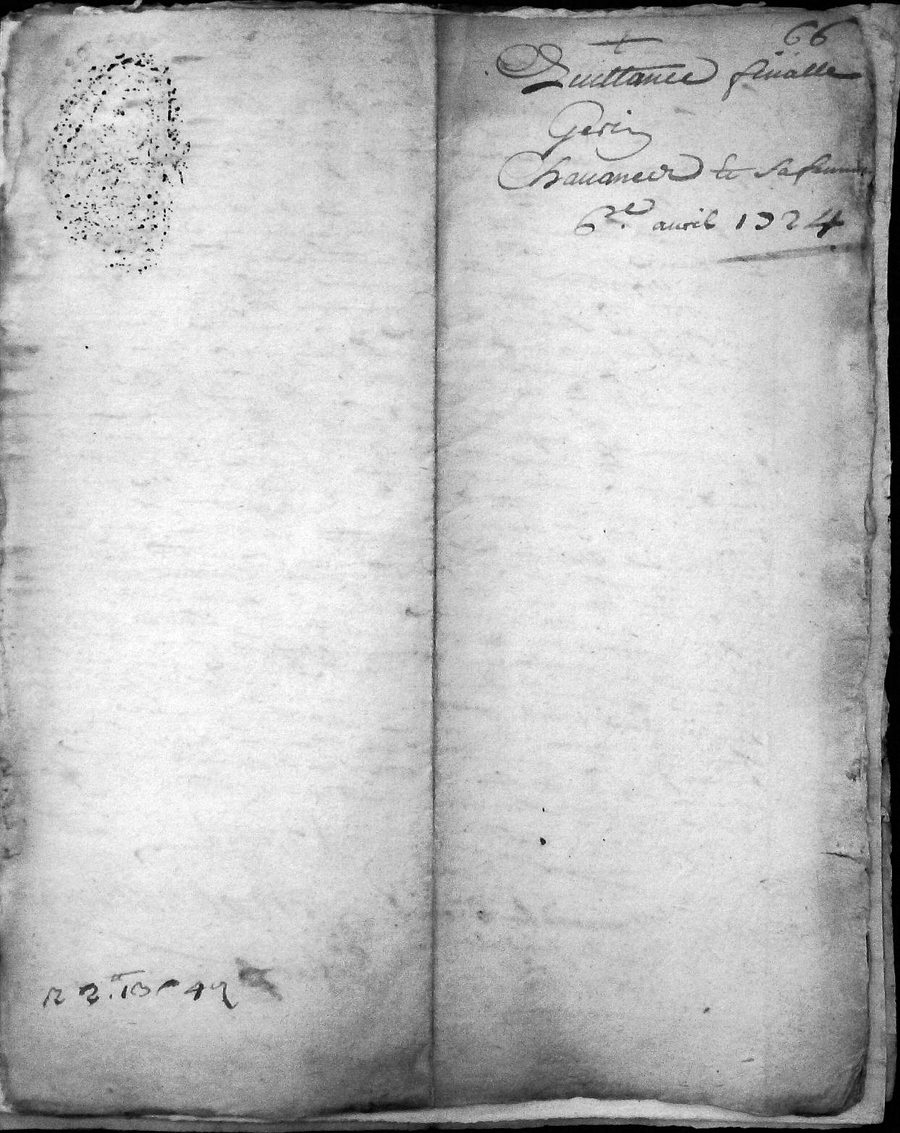 66
+
Quittance finalle
Gerin
Chavanede et sa femme
6.e avril 1724